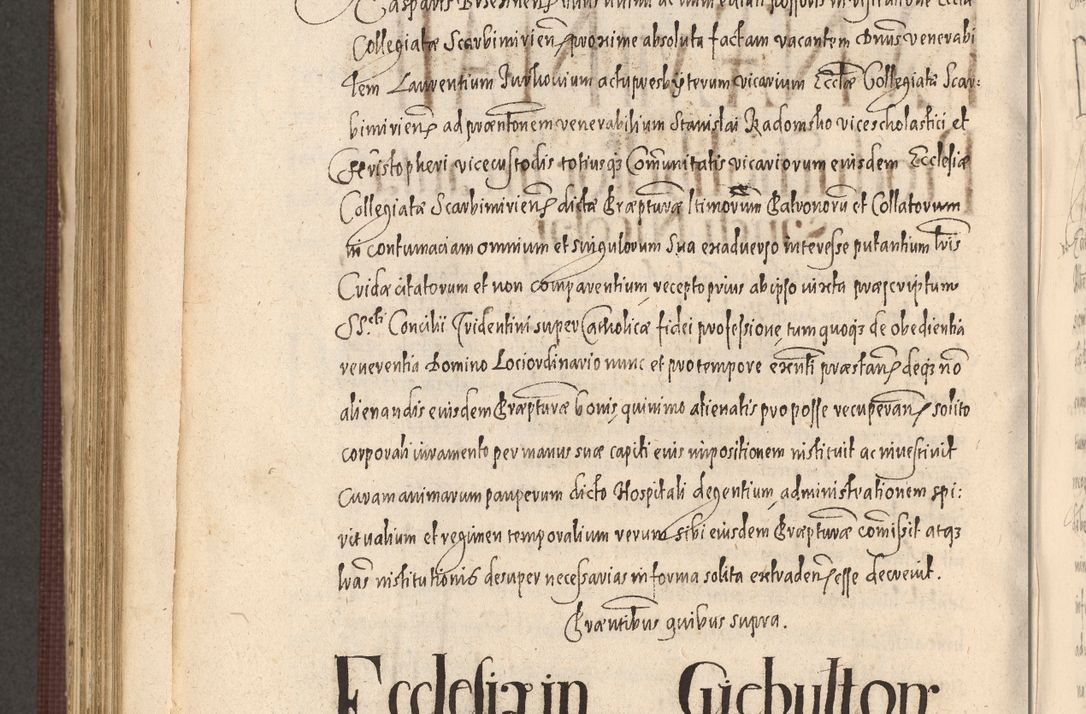 Collegiatæ Scarbimirien̄ proxime absoluta factam vacantem Dnus venerabi
lem Laurentium Iurkovium actu presbyterum vicarium Eccliæ Collegiatæ Scar:
bimirien̄ ad præntonem venerabilium Stanislai Radomsko vicescholastici et
Christopheri vicecustodis totiusq; Com̄unitatis vicariorum eiusdem Ecclesiæ
Collegiatæ Scarbimirien̄ dictæ Præpturæ ltimorum Patronorū et Collatorum
in contumaciam omnium et singulorum sua exadverso interesse putantium lris
Cridæ citatorum et non comparentium, recepto prius ab ipso iuxta præscriptum
SS.cti Concilii Tridentini super Catholicæ fidei professione, tum quoq; de obedientia
reverentia Domino Loci ordinario nunc et pro tempore exn̄ti præstan̄ deq; nō
alienandis eiusdem Præpturæ bonis, quinimo alienatis pro posse recuperan̄ solito
corporali iuramento per manus suæ capiti eius impositionem instituit ac investivit
Curam animarum pauperum dicto Hospitali degentium, administrationem spi:
ritualium et regimen temporalium rerum sibi eiusdem Præpturæ com̄isit atq;
lras institutionis desuper necessarias in forma solita extraden̄ esse decrevit.
Præntibus quibus supra.
Ecclesiæ in Giebulton